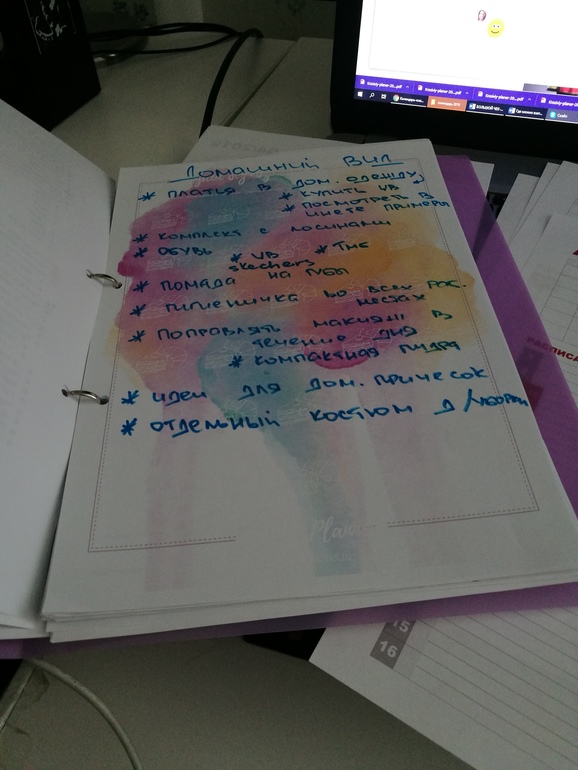 Домашний вид
* платья в дом. одежду
* купить WB
* посмотреть в
инете примеры
* комплект с лосинами
* обувь * WB * ТНБ
skechers
* помада на губы
* гигиеничка во всех рос.
месзах
* поправлять макияж в
течение дня
* компактная пудра
* идеи для дом. причесок
* отдельный костюм д/уборки
Plan
15
16
РАСПИСА